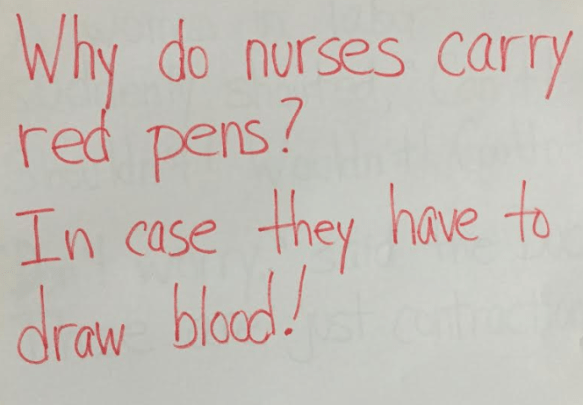 Why do nurses carry
red pens?
In case they have to
draw blood!